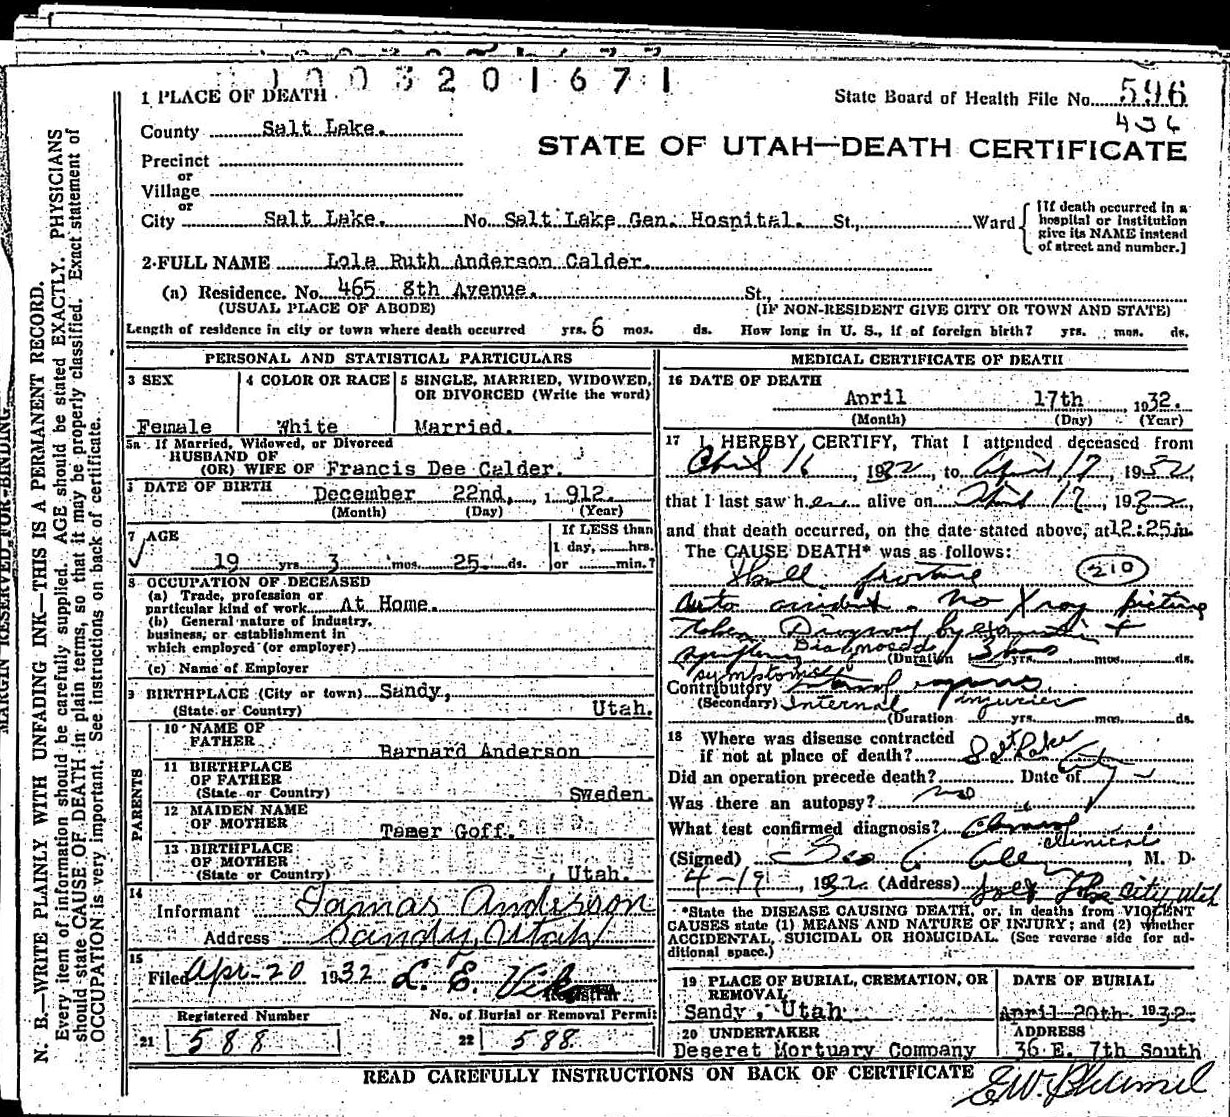 1003201671
1 PLACE OF DEATH
State Board of Health File No. 596
County Salt Lake.
STATE OF UTAH—DEATH CERTIFICATE
Precinct
or
Village
or
City Salt Lake. No. Salt Lake Gen. Hospital. St., Ward
[If death occurred in a
hospital or institution
give its NAME instead
of street and number.]
2 FULL NAME Lola Ruth Anderson Calder.
(a) Residence. No. 465 8th Avenue. St.,
(USUAL PLACE OF ABODE) (IF NON-RESIDENT GIVE CITY OR TOWN AND STATE)
Length of residence in city or town where death occurred yrs. 6 mos. ds. How long in U. S., if of foreign birth? yrs. mos. ds.
MARGIN RESERVED FOR BINDING
N. B.—WRITE PLAINLY WITH UNFADING INK—THIS IS A PERMANENT RECORD.
Every item of information should be carefully supplied. AGE should be stated EXACTLY. PHYSICIANS
should state CAUSE OF DEATH in plain terms, so that it may be properly classified. Exact statement of
OCCUPATION is very important. See instructions on back of certificate.
PERSONAL AND STATISTICAL PARTICULARS
3 SEX
Female
4 COLOR OR RACE
White
5 SINGLE, MARRIED, WIDOWED,
OR DIVORCED (Write the word)
Married.
5a If Married, Widowed, or Divorced
HUSBAND OF
(OR) WIFE OF Francis Dee Calder.
DATE OF BIRTH December 22nd, 1912.
(Month) (Day) (Year)
7 AGE
19 yrs. 3 mos. 25 ds.
If LESS than
1 day, hrs.
or min.?
8 OCCUPATION OF DECEASED
(a) Trade, profession or
particular kind of work At Home.
(b) General nature of industry,
business, or establishment in
which employed (or employer)
(c) Name of Employer
9 BIRTHPLACE (City or town) Sandy,
(State or Country) Utah.
PARENTS
10 NAME OF
FATHER Barnard Anderson
11 BIRTHPLACE
OF FATHER
(State or Country) Sweden.
12 MAIDEN NAME
OF MOTHER Tamer Goff.
13 BIRTHPLACE
OF MOTHER
(State or Country) Utah.
14
Informant Tamas Anderson
Address Sandy, Utah
15
Filed Apr-20 1932 L. E.
Registrar
Registered Number
21 588
No. of Burial or Removal Permit
22 588
MEDICAL CERTIFICATE OF DEATH
16 DATE OF DEATH
April 17th 1932.
(Month) (Day) (Year)
17 I HEREBY CERTIFY, That I attended deceased from
April 16, 1932, to April 17, 1932,
that I last saw her alive on April 17, 1932,
and that death occurred, on the date stated above, at 12:25 m.
The CAUSE DEATH* was as follows:
Skull fracture 210
Auto accident. No Xray picture
taken Diagnosis by examination +
Diagnosed
(Duration yrs. mos. ds.
symptoms
Contributory
(Secondary) Internal injuries
(Duration yrs. mos. ds.
18 Where was disease contracted
if not at place of death? Salt Lake City
Did an operation precede death? Date of
Was there an autopsy? no
What test confirmed diagnosis? Clinical
clinical
(Signed) Geo, M. D.
4-19, 1932 (Address) Salt Lake City, Utah
*State the DISEASE CAUSING DEATH, or, in deaths from VIOLENT
CAUSES state (1) MEANS AND NATURE OF INJURY; and (2) whether
ACCIDENTAL, SUICIDAL OR HOMICIDAL. (See reverse side for ad-
ditional space.)
19 PLACE OF BURIAL, CREMATION, OR
REMOVAL
Sandy, Utah
DATE OF BURIAL
April 20th 1932.
20 UNDERTAKER
Deseret Mortuary Company
ADDRESS
36 E. 7th South
READ CAREFULLY INSTRUCTIONS ON BACK OF CERTIFICATE